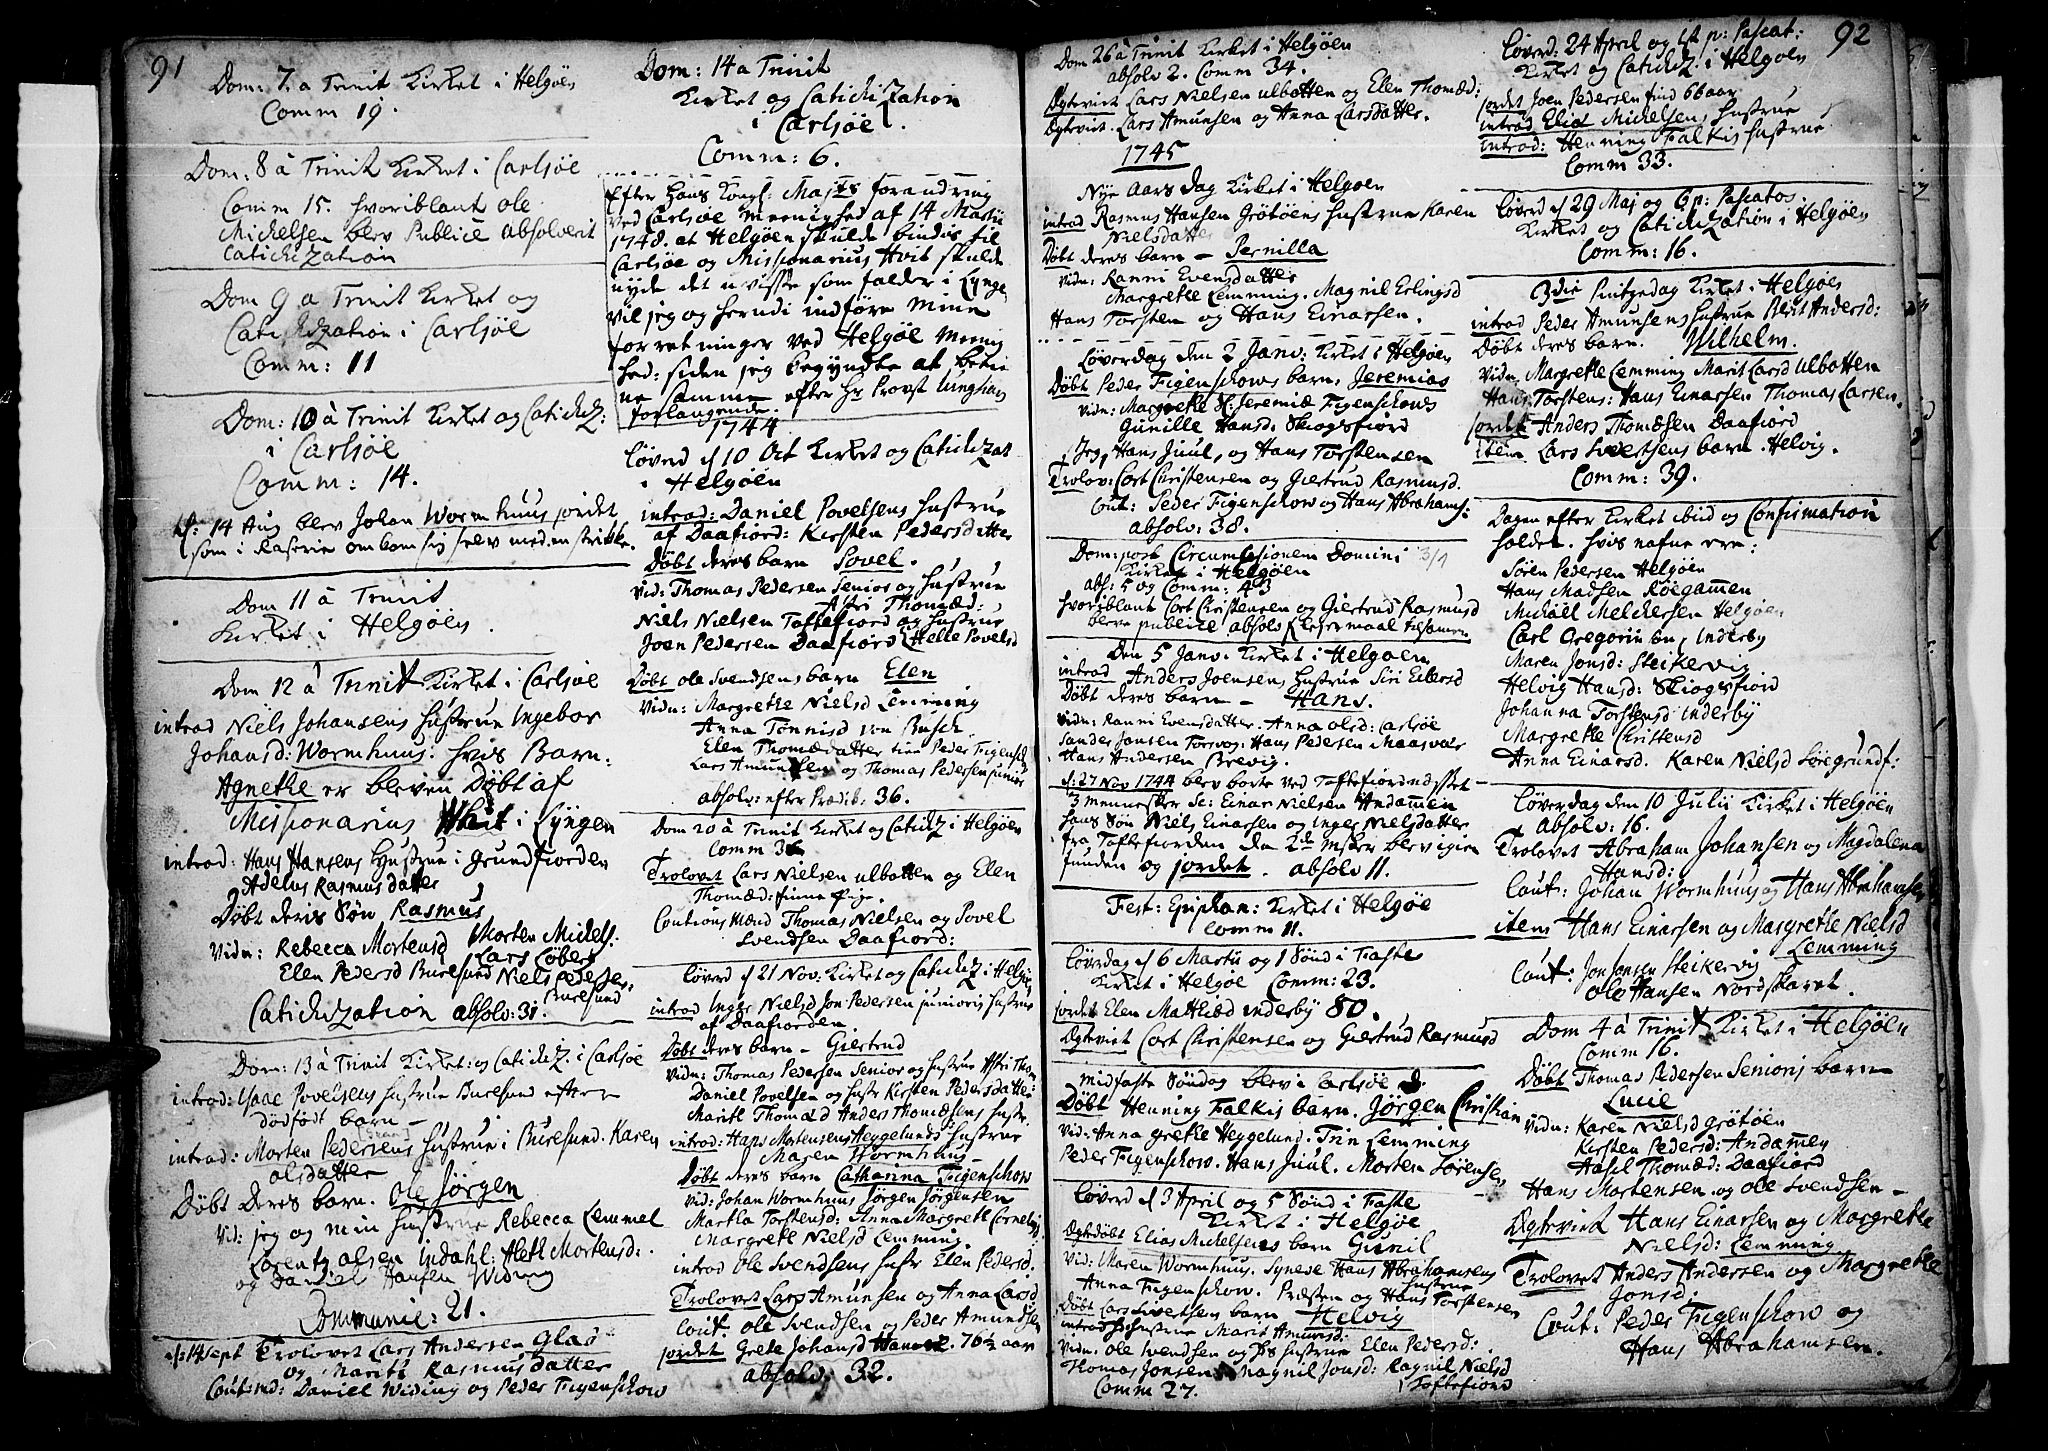 91
Dom: 7. a Trinit Kirket i Helgöen
Comm 19.
Dom: 8 à Trinit Kirket i Carlsöe
Comm 15. hvoriblant ole
Michelsen blev Publice absolverit
Catichization
Dom 9 a Trinit Kirket og
Catichization i Carlsöe
Comm: 11
Dom: 10 à Trinit Kirket og Catichiz:
i Carlsöe
Comm: 14.
d: 14 Aug blev Johan Wormhuus jordet
som i Raserie ombom sig selv med en strikke.
Dom 11 à Trinit
Kirket i Helgöen
Dom 12 à Trinit Kirket i Carlsöe
introd Niels Johansens hustrue Ingebor
Johansd: Wormhuus. hvis Barn
Agnethe er bleven Döbt af
Missionarius Whit i Lyngen
introd: Hans Hansens hustrue i Grundfiorden
Adelus Rasmusdatter
Döbt deris Sön Rasmus
Vidn: Rebecca Mortensd Morten Michels:
Lars Löberg
Elen Pedersd Buresund Niels Pedersen
Buresund
Catichization absolv: 31.
Dom: 13 à Trinit Kirket: og Catichiz: i Carlsöe
introd: Isaac Povelsens hustrue Buresund efter
dödfödt barn
introd: Morten Pedersens hustrue i Buresund. Karen
olsdatter
Döbt deres barn. Ole Jörgen
Vid: jeg og min hustrue Rebecca Lemmel
Lorentz olsen Indahl: Aleth Mortensd:
og Daniel Hansen Widing
Communic: 21.
d: 14 Sept Trolovet Lars Andersen Glad
og Marit Rasmusdatter
Coutsmd: Daniel Widing og Peder Figenschow
Dom: 14 a Trinit
Kirket og Catichization
i Carlsöe.
Comm: 6.
Efter Hans Kongl: Majts forandring
ved Carlsöe Meenighed af 14 Martii
1748. at Helgöen skulde bindes til
Carlsöe og Missionarius Hvit skulde
nyde det uvisse som falder i Lyngen
vil jeg og herudi indföre mine
forretninger ved Helgöe Meenig
hed: siden jeg begyndte at betie
ne samme efter Hr Provst Junghans
forlangende.
1744
Löverd d 10 Oct Kirket og Catichizat
i Helgöen
introd: Daniel Povelsens hustrue
af Daafiord: Kirsten Pedersdatter
Döbt deres barn Povel.
Vid: Thomas Pedersen Senior og hustrue
Astri Thomæd:
Niels Nielsen Toftefiord og hustrue
Joen Pedersen Daafiord Helle Povelsd
Döbt ole Svendsens barn Elen
Vidn: Margrethe Nielsd Lemming
Anna Tönnisd von Busch.
Elen Thomædatter Peder Figenschow
Lars Amundsen og Thomas Pedersen junior
absolv: efter Prædik: 36.
Dom 20 à Trinit Kirket og Catichiz i Helgöen
Comm 36
Trolovet Lars Nielsen ulbotten og Elen
Thomæd: finne Pige.
Coutions Mænd Thomas Nielsen og Povel
Svendsen Daafiord:
Löverd d 21 Nov: Kirket og Catichiz i Helgöe
introd Inger Nielsd Jon Pedersen junioris hustrue
af Daafiorden
Döbt deres barn - Giertrud
Vidn: Thomas Pedersen Senior og hustrue Astri Thom
Daniel Povelsen og hustr Kirsten Pedersdatter
Marite Thomæd Anders Thomæsens hustr.
introd: Hans Mortensens Heggelunds hustrue
Maren Wormhuus
Döbt deres barn Catharina Figenschow
Vid: Johan Wormhuus Jörgen Jörgensen
Martha Torstensd: Anna Margrete Cornelius
Margrete Nielsd Lemming.
introd Ole Svendsens hustr Elen Pedersd.
Trolovet Lars Amundsen og Anna Larsd
Cout. Ole Svendsen og Peder Amundsen
jordet Grete Johansd 76½ aar
absolv. 32.
Dom 26 à Trinit Kirket i Helgöen
absolv 2. Comm 34.
Ægteviet Lars Nielsen ulbotten og Elen Thomæd:
Ægteviet. Lars Amunsen og Anna Larsdatter.
1745
Nye Aars Dag Kirket i Helgöen
introd Rasmus Hansen Grötöens hustrue Karen
Nielsdatter
Döbt deres barn - Pernilla
Vidn: Ranni Evensdatter
Margrethe Lemming. Magnil Erlingsd
Hans Torsten og Hans Einarsen.
Löverdag den 2 Janv: Kirket i Helgöen
Döbt Peder Figenschows barn. Jeremias
Vidn: Margrethe Sl: Jeremiæ Figenschows
Gunille Hansd: Skogsfiord
Jeg, Hans Juul, og Hans Torstensen
Trolov: Cort Christensen og Giertrud Rasmusd.
Cout: Peder Figenschow og Hans Abrahams:
absolv: 38.
Dom: post Circumcisionem Domini 3/1
Kirket i Helgöen
abs: 5 og Comm: 43
hvoriblant Cort Christensen og Giertrud Rasmusd
bleve publice absolv Lejermaal tilsamen
Den 5 Janv. Kirket i Helgöen
introd Anders Joensens hustrue Siri Eilersd
Döbt deres barn - Hans.
Vidn: Ranni Evensdatter. Anna Olsd: Carlsöe
Sander Jansen Torsvog: Hans Pedersen Maasvær
Hans Andersen Brevig.
d: 27 Nov 1744 blev borte ved Toftefiordnesset
3 mennesker Sc: Einar Nielsen Andammen
hans Sön Niels Einarsen og Inger Nielsdatter
fra Toftefiorden den 2de blev igien
funden og jordet. absolv 11.
Fest: Epiphan: Kirket i Helgöe
Comm 11.
Löverdag d 6 Martii og 1 Sönd i Faste
Kirket i Helgöe Comm: 23.
jordet Elen Mathiæd inderby 80.
Ægteviet Cort Christensen og Giertrud Rasmusd
Midfaste Söndag blev i Carlsöe
Döbt Henning Falkis barn. Jörgen Christian
Vid: Anna Grethe Heggelund. Trin Lemming
Peder Figenschow. Hans Juul. Morten Sörensen
Löverd d 3 April og 5 Sönd i Faste
Kirket i Helgöe
Ægtedöbt Elias Michelsens barn Gunil
Vid: Maren Wormhuus. Synneve Hans Abrahamsens
hustrue
Anna Figenschow. Præsten og Hans Torstensen
Döbt Lars Sivertsens barn Helvig
introd hustrue Marit Amunsd:
Vidn: ole Svendsen og hustrue Elen Pedersd:
Thomas Jonsen Magnil Jonsd: Ragnil Nielsd
Toftefiord
Comm 27.
92
Löverd: 24 April og 1st p: Pascat:
Kirket og Catichiz i Helgöen
jordet Joen Pedersen find 66 aar
introd Eliæ Michelsens hustrue
introd: Henning Falkis hustrue
Comm 33.
Löverd d 29 Maj og 6 p: Pascatos.
Kirket og Catichization i Helgöen
Comm: 16.
3die Pintzedag Kirket i Helgöen
introd Peder Amunsens hustrue Berit Andersd:
Döbt deres barn. Wilhelm.
Vidn. Margrethe Lemming Marit Larsd Ulbotten
Hans Torstens: Hans Einarsen Thomas Larsen.
jordet Anders Thomæsen Daafiord
Item Lars Sivertsens barn. Helvig.
Comm: 39.
Dagen efter Kirket ibid og Confirmation
holdet. hvis nafne ere:
Sören Pedersen Helgöen
Hans Madsen Röegammen
Michael Melchersen Helgöen
Carl Gregoriussen, Inderby
Maren Jonsd: Steikervig
Helvig Hansd: Skogsfiord
Johanna Torstensd inderby
Margrethe Christensd
Anna Einarsd. Karen Nielsd Söregrundf:
Löverdag den 10 Julii Kirket i Helgöen
absolv: 16.
Trolovet Abraham Johansen og Magdalena
Hansd:
Cout: Johan Wormhuus og Hans Abrahamsen
item Hans Einarsen og Margrethe Nielsd
Lemming
Cout: Jon Jonsen Steikervig
Ole Hansen Nordskaret.
Dom 4 à Trinit Kirket i Helgöen
Comm 16.
Döbt Thomas Pedersen Senioris barn
Lucie
Vidn: Karen Nielsd Grötöen
Kirsten Pedersd: Andammen
Aasel Thomæd: Daafiord
Hans Mortensen. og Ole Svendsen
Ægteviet Hans Einarsen og Margrethe
Nielsd: Lemming
Trolovet Anders Andersen og Margrethe
Jonsd:
Cout: Peder Figenschow og
Hans Abrahamsen.